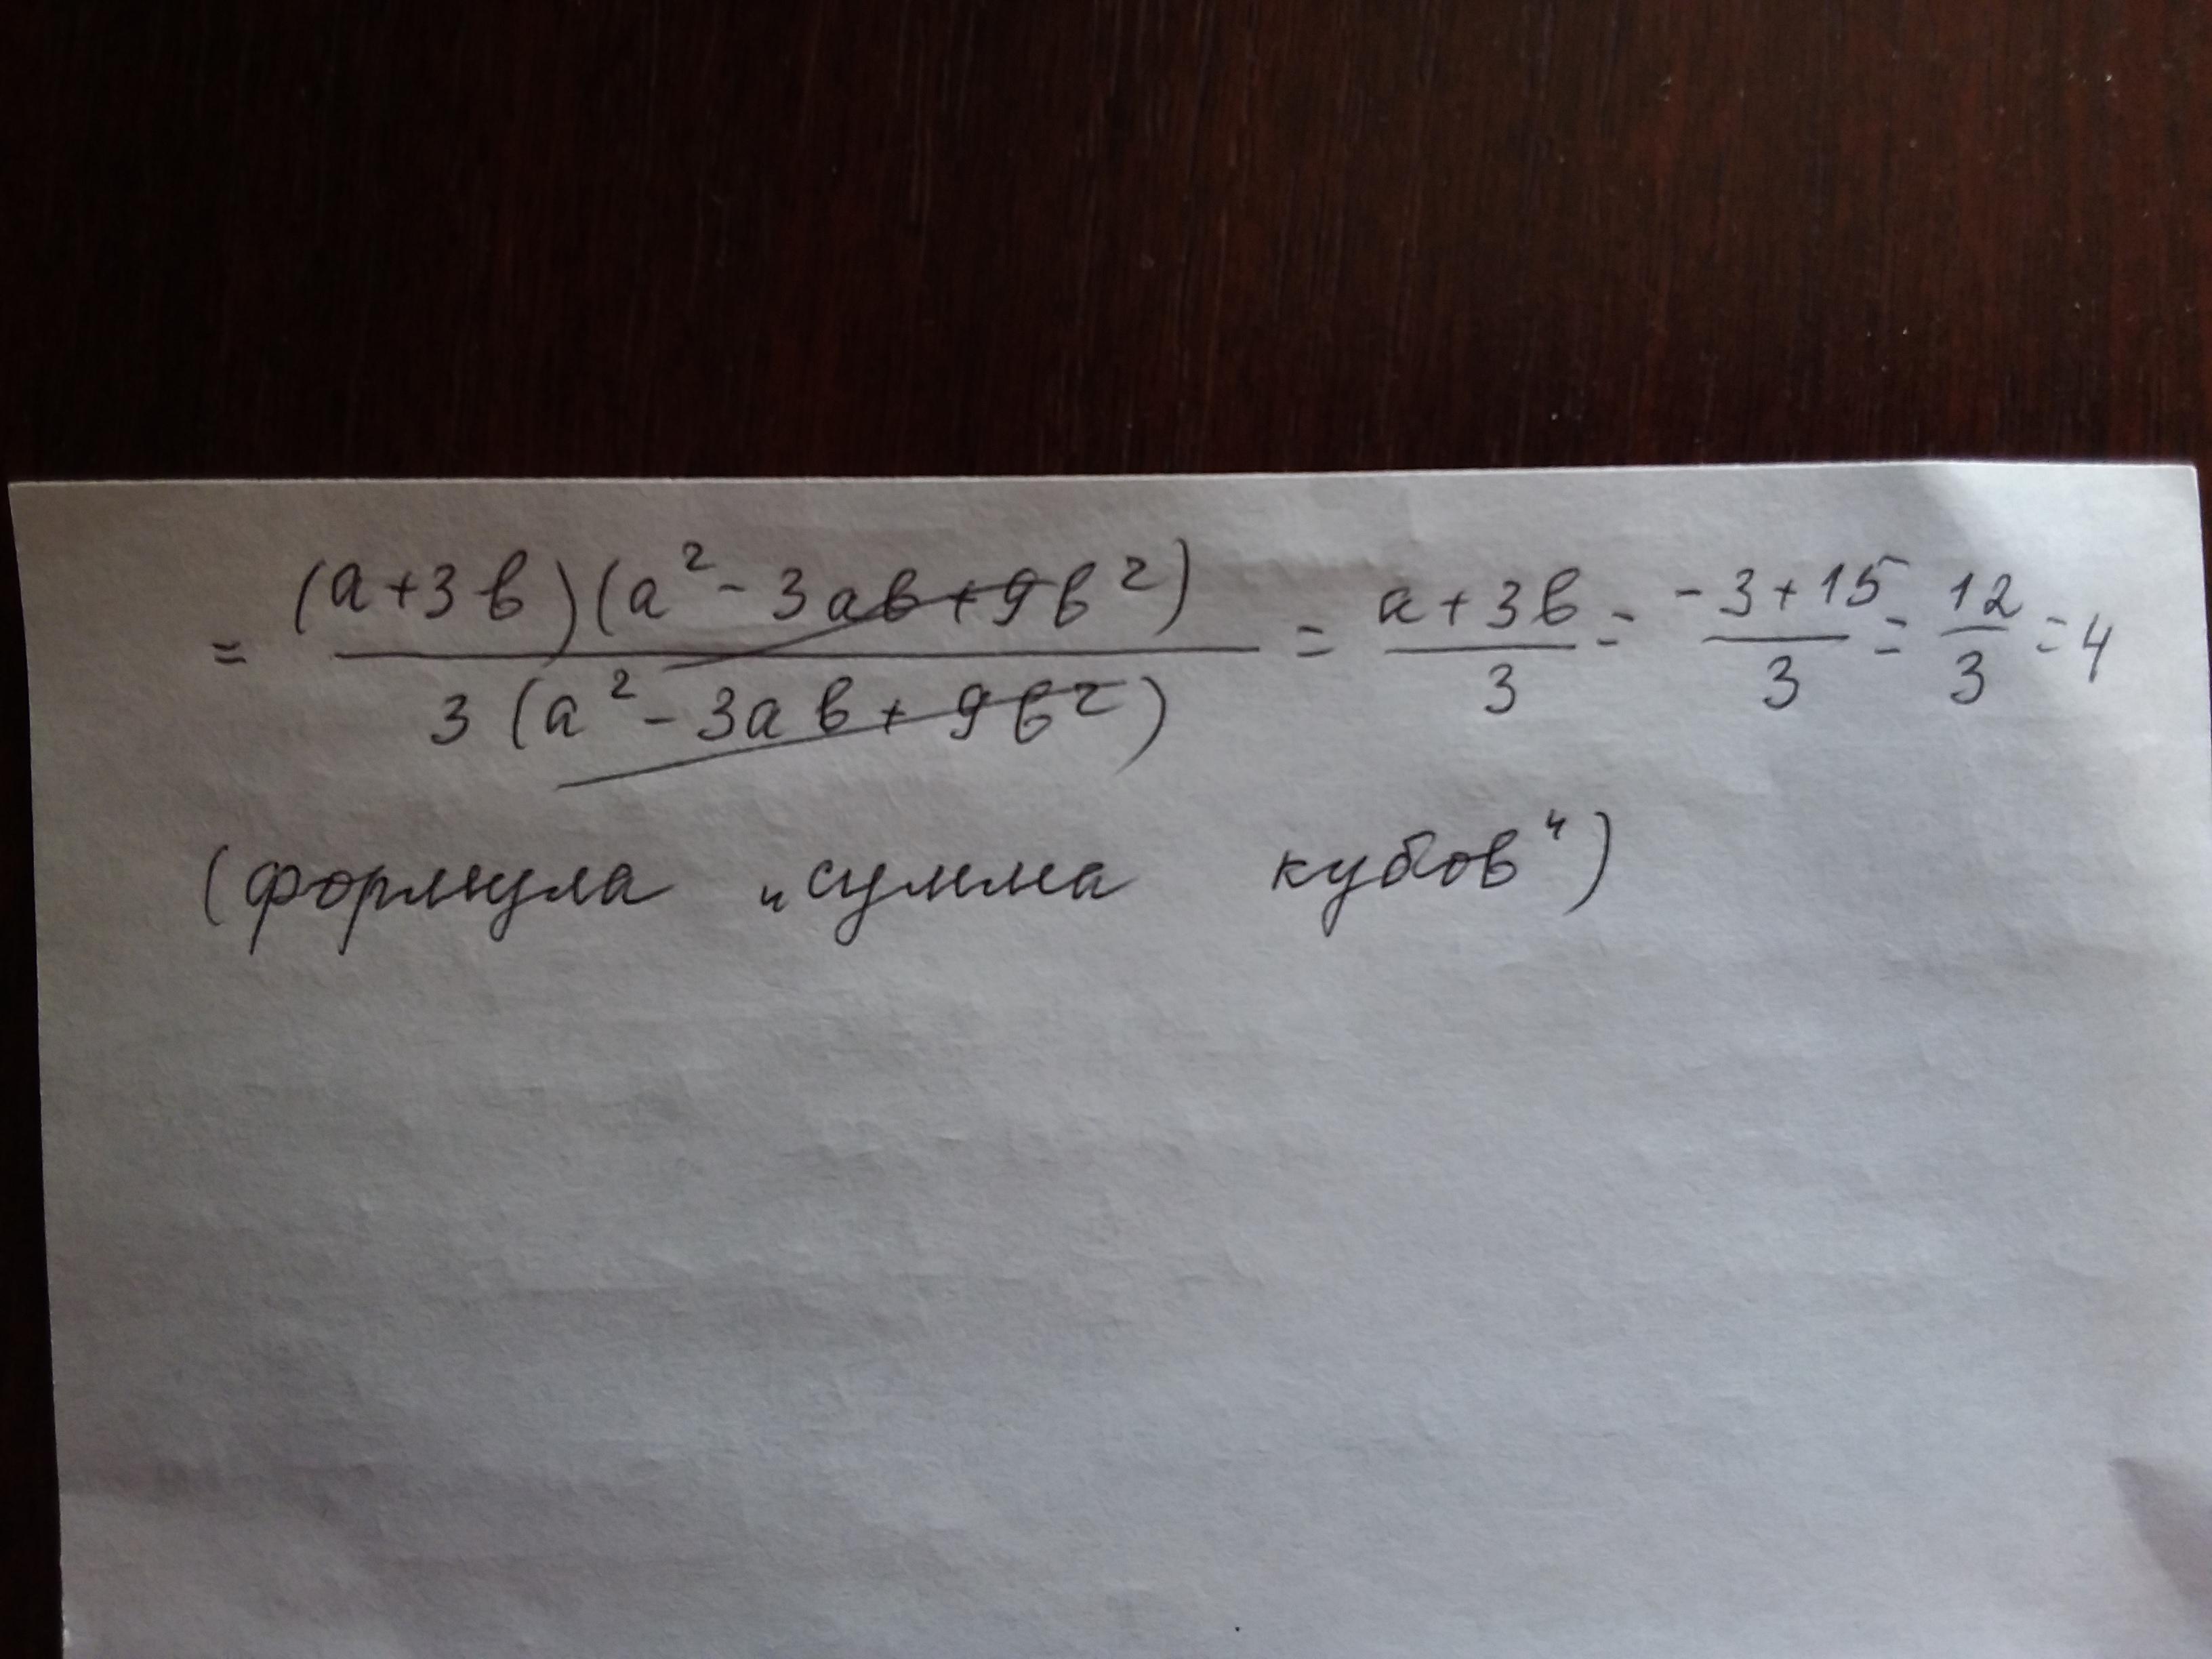 = (a+3b)(a²-3ab+9b²) / 3(a²-3ab+9b²) = a+3b / 3 = -3+15 / 3 = 12 / 3 = 4
(формула „сумма кубов“)